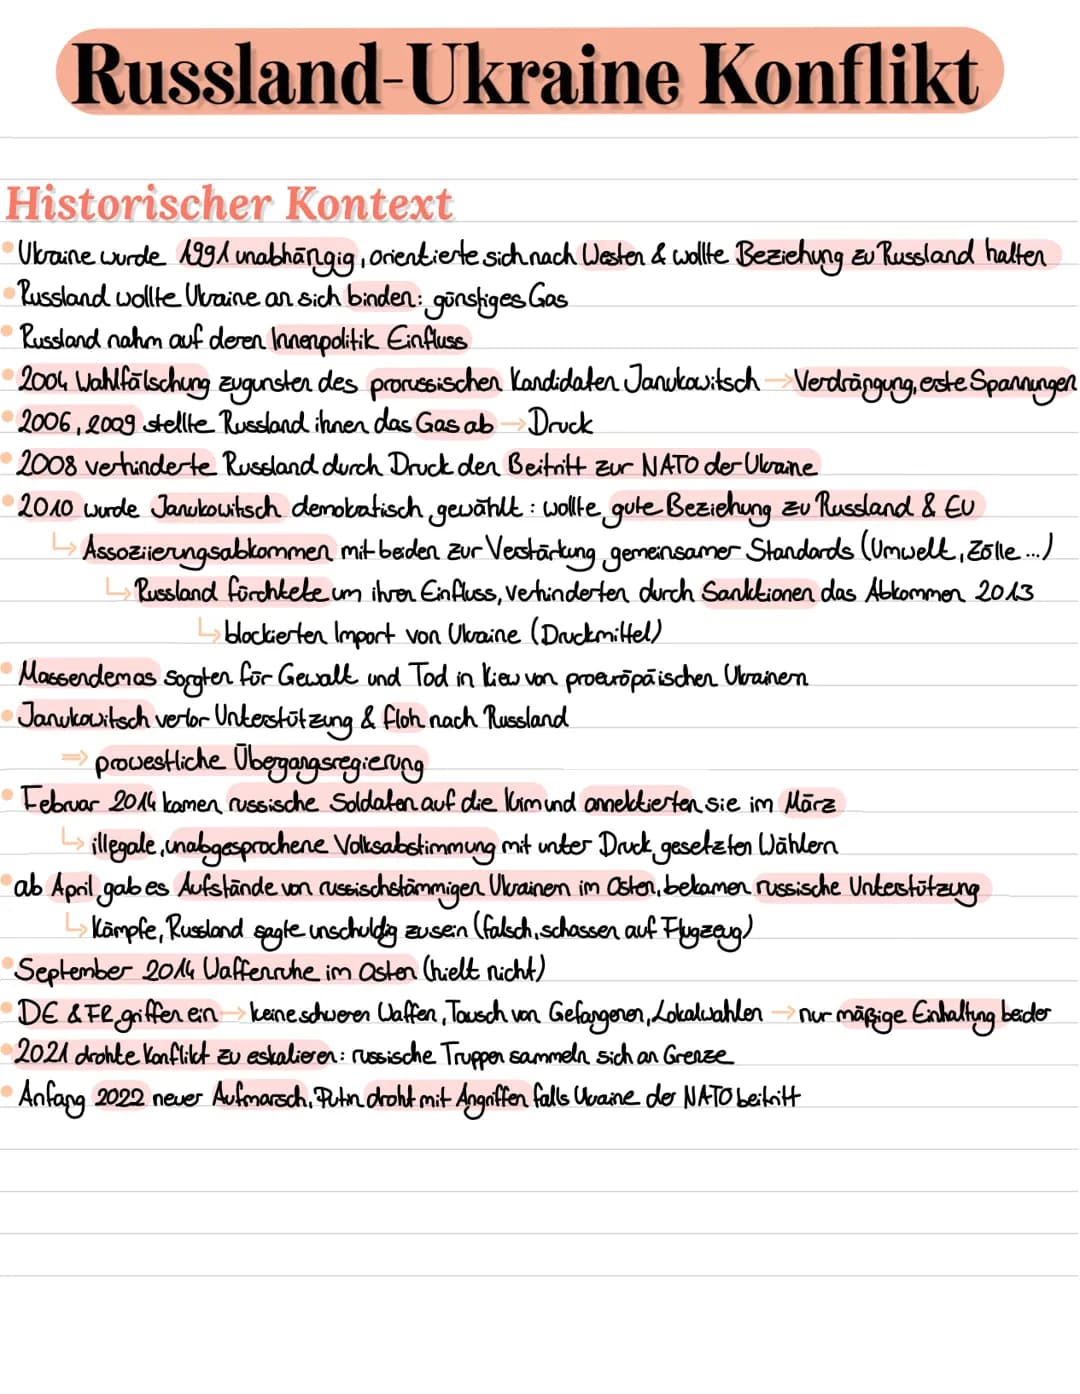 Russland-Ukraine Konflikt
Historischer Kontext
• Ukraine wurde 1991 unabhängig, orientierte sich nach Westen & wollte Beziehung zu Russland halten
• Russland wollte Ukraine an sich binden: günstiges Gas
• Russland nahm auf deren Innenpolitik Einfluss
• 2004 Wahlfälschung zugunsten des prorussischen Kandidaten Janukowitsch → Verdrängung, erste Spannungen
• 2006, 2009 stellte Russland ihnen das Gas ab → Druck
• 2008 verhinderte Russland durch Druck den Beitritt zur NATO der Ukraine
• 2010 wurde Janukowitsch demokratisch gewählt: wollte gute Beziehung zu Russland & EU
↳ Assoziierungsabkommen mit beiden zur Verstärkung gemeinsamer Standards (Umwelt, Zölle...)
↳ Russland fürchtete um ihren Einfluss, verhinderten durch Sanktionen das Abkommen 2013
↳ blockierten Import von Ukraine (Druckmittel)
• Massendemos sorgten für Gewalt und Tod in Kiew von proeuropäischen Ukrainern
• Janukowitsch verlor Unterstützung & floh nach Russland
⇒ prowestliche Übergangsregierung
• Februar 2014 kamen russische Soldaten auf die Krim und annektierten sie im März
↳ illegale, unabgesprochene Volksabstimmung mit unter Druck gesetzten Wählern
• ab April gab es Aufstände von russischstämmigen Ukrainern im Osten, bekamen russische Unterstützung
↳ Kämpfe, Russland sagte unschuldig zu sein (falsch, schossen auf Flugzeug)
• September 2014 Waffenruhe im Osten (hielt nicht)
• DE & FR griffen ein → keine schweren Waffen, Tausch von Gefangenen, Lokalwahlen → nur mäßige Einhaltung beider
• 2021 drohte Konflikt zu eskalieren: russische Truppen sammeln sich an Grenze
• Anfang 2022 neuer Aufmarsch, Putin droht mit Angriffen falls Ukraine der NATO beitritt